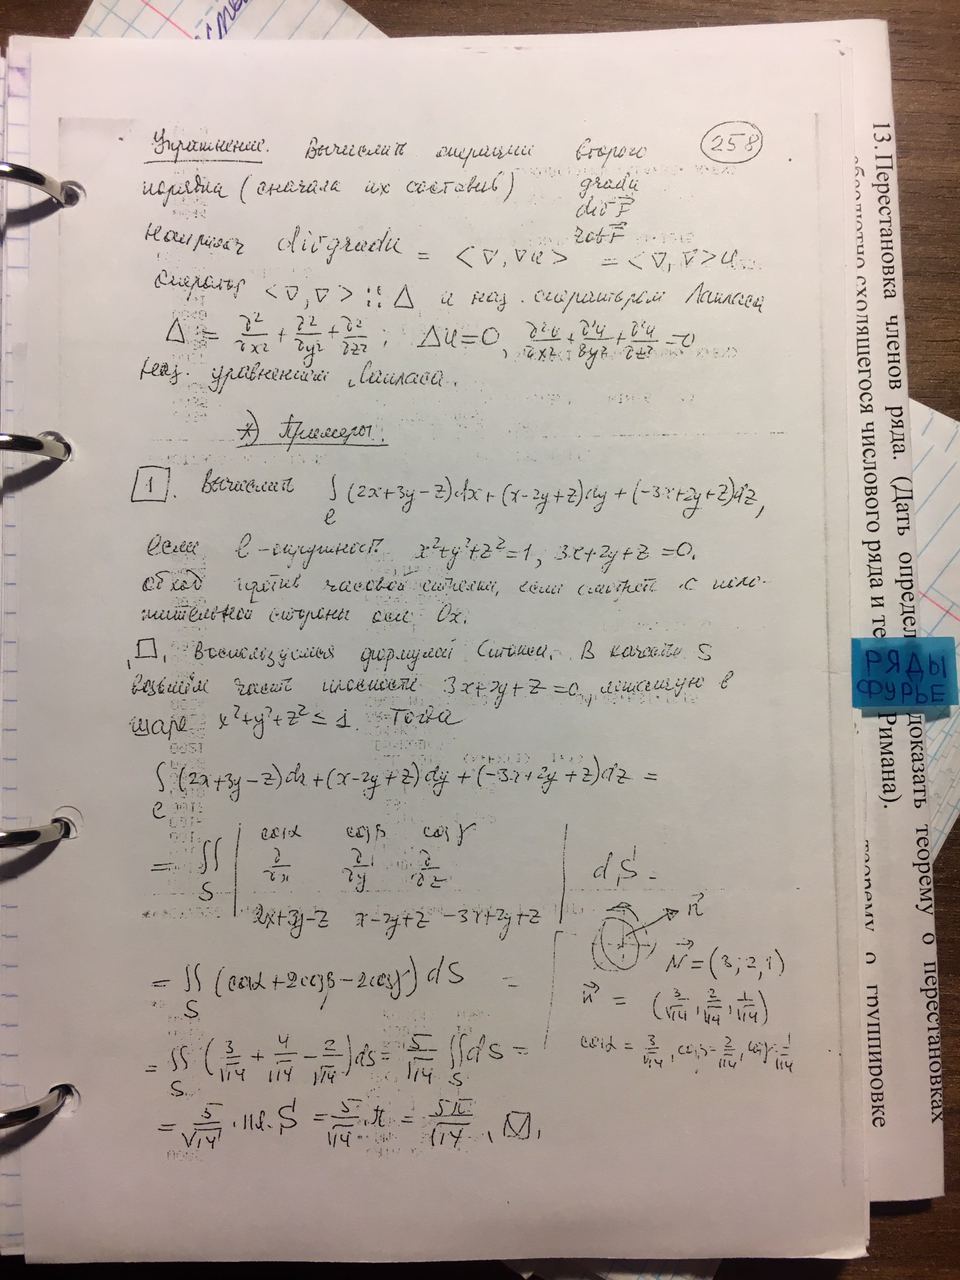 Упражнение. Вычислить операции второго
порядка (сначала их составив) gradu
div F⃗
rot F⃗
Например divgradu = <∇, ∇u> = <∇, ∇>u
Оператор <∇, ∇> :: Δ и наз. оператором Лапласа
Δ = ∂²/∂x² + ∂²/∂y² + ∂²/∂z² ; Δu=0, ∂²u/∂x² + ∂²u/∂y² + ∂²u/∂z² = 0
Наз. уравнением Лапласа.
258
*) Примеры.
1. Вычислить ∫ₑ (2x+3y-z)dx+(x-2y+z)dy+(-3x+2y+z)dz,
если ℓ-окружность x²+y²+z²=1, 3x+2y+z=0.
обход против часовой стрелки, если смотреть с поло-
жительной стороны оси Ox.
□. Воспользуемся формулой Стокса. В качестве S
возьмём часть плоскости 3x+2y+z=0, лежащую в
шаре x²+y²+z² ≤ 1. Тогда
∫ₑ (2x+3y-z)dx+(x-2y+z)dy+(-3x+2y+z)dz =
= ∬_S | cosα cosβ cosγ
∂/∂x ∂/∂y ∂/∂z
2x+3y-z x-2y+z -3x+2y+z | dS =
= ∬_S (cosα+2cosβ-2cosγ) dS =
n⃗
N⃗ = (3; 2, 1)
n⃗ = (3/√14, 2/√14, 1/√14)
cosα = 3/√14, cosβ = 2/√14, cosγ = 1/√14
= ∬_S (3/√14 + 4/√14 - 2/√14)dS = 5/√14 ∬_S dS =
= 5/√14 · пл. S = 5/√14 · π = 5π/√14.
13. Перестановка членов ряда. (Дать определ доказать теорему о перестановках
абсолютно сходящегося числового ряда и те Римана).
теорему о группировке
РЯДЫ
ФУРЬЕ